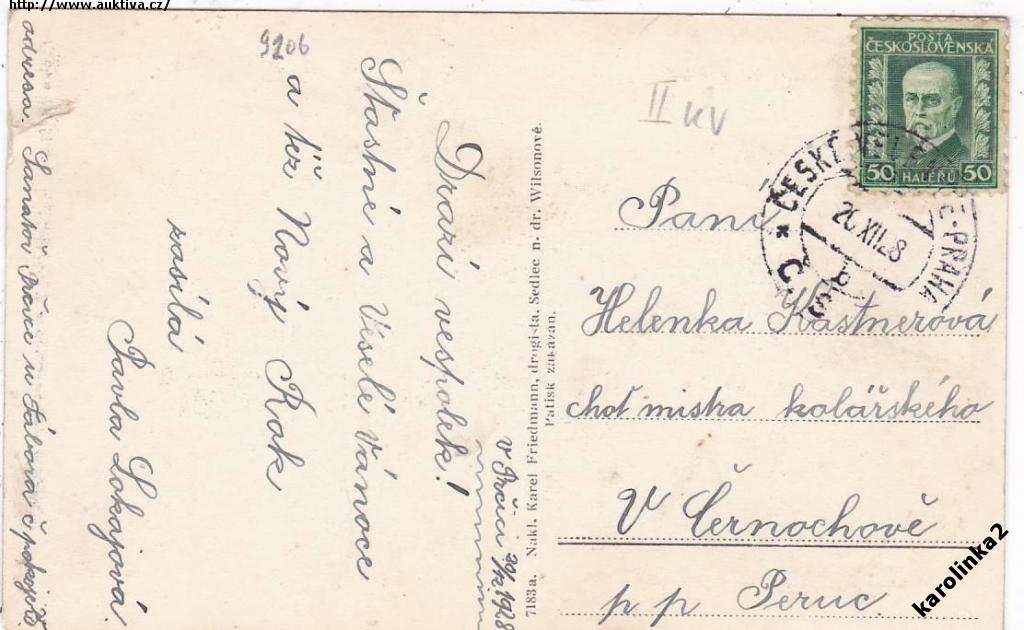 http://www.auktiva.cz/
9206
v Prčici 20/12 1928
Drazí vespolek!
Šťastné a Veselé Vánoce
a též Nový Rok
zasílá
Pavla Lokajová
adresa.
7183a. Nakl. Karel Friedmann, drogista, Sedlec n. dr. Wilsonové.
Patisk zakázán.
II
POŠTA
ČESKOSLOVENSKÁ
50 HALÉŘŮ 50
ČESKÉ -PRAHA
20 XII 28
Paní
Helenka Kastnerová
choť mistra kolářského
V Černochově
p p Peruc
karolinka2